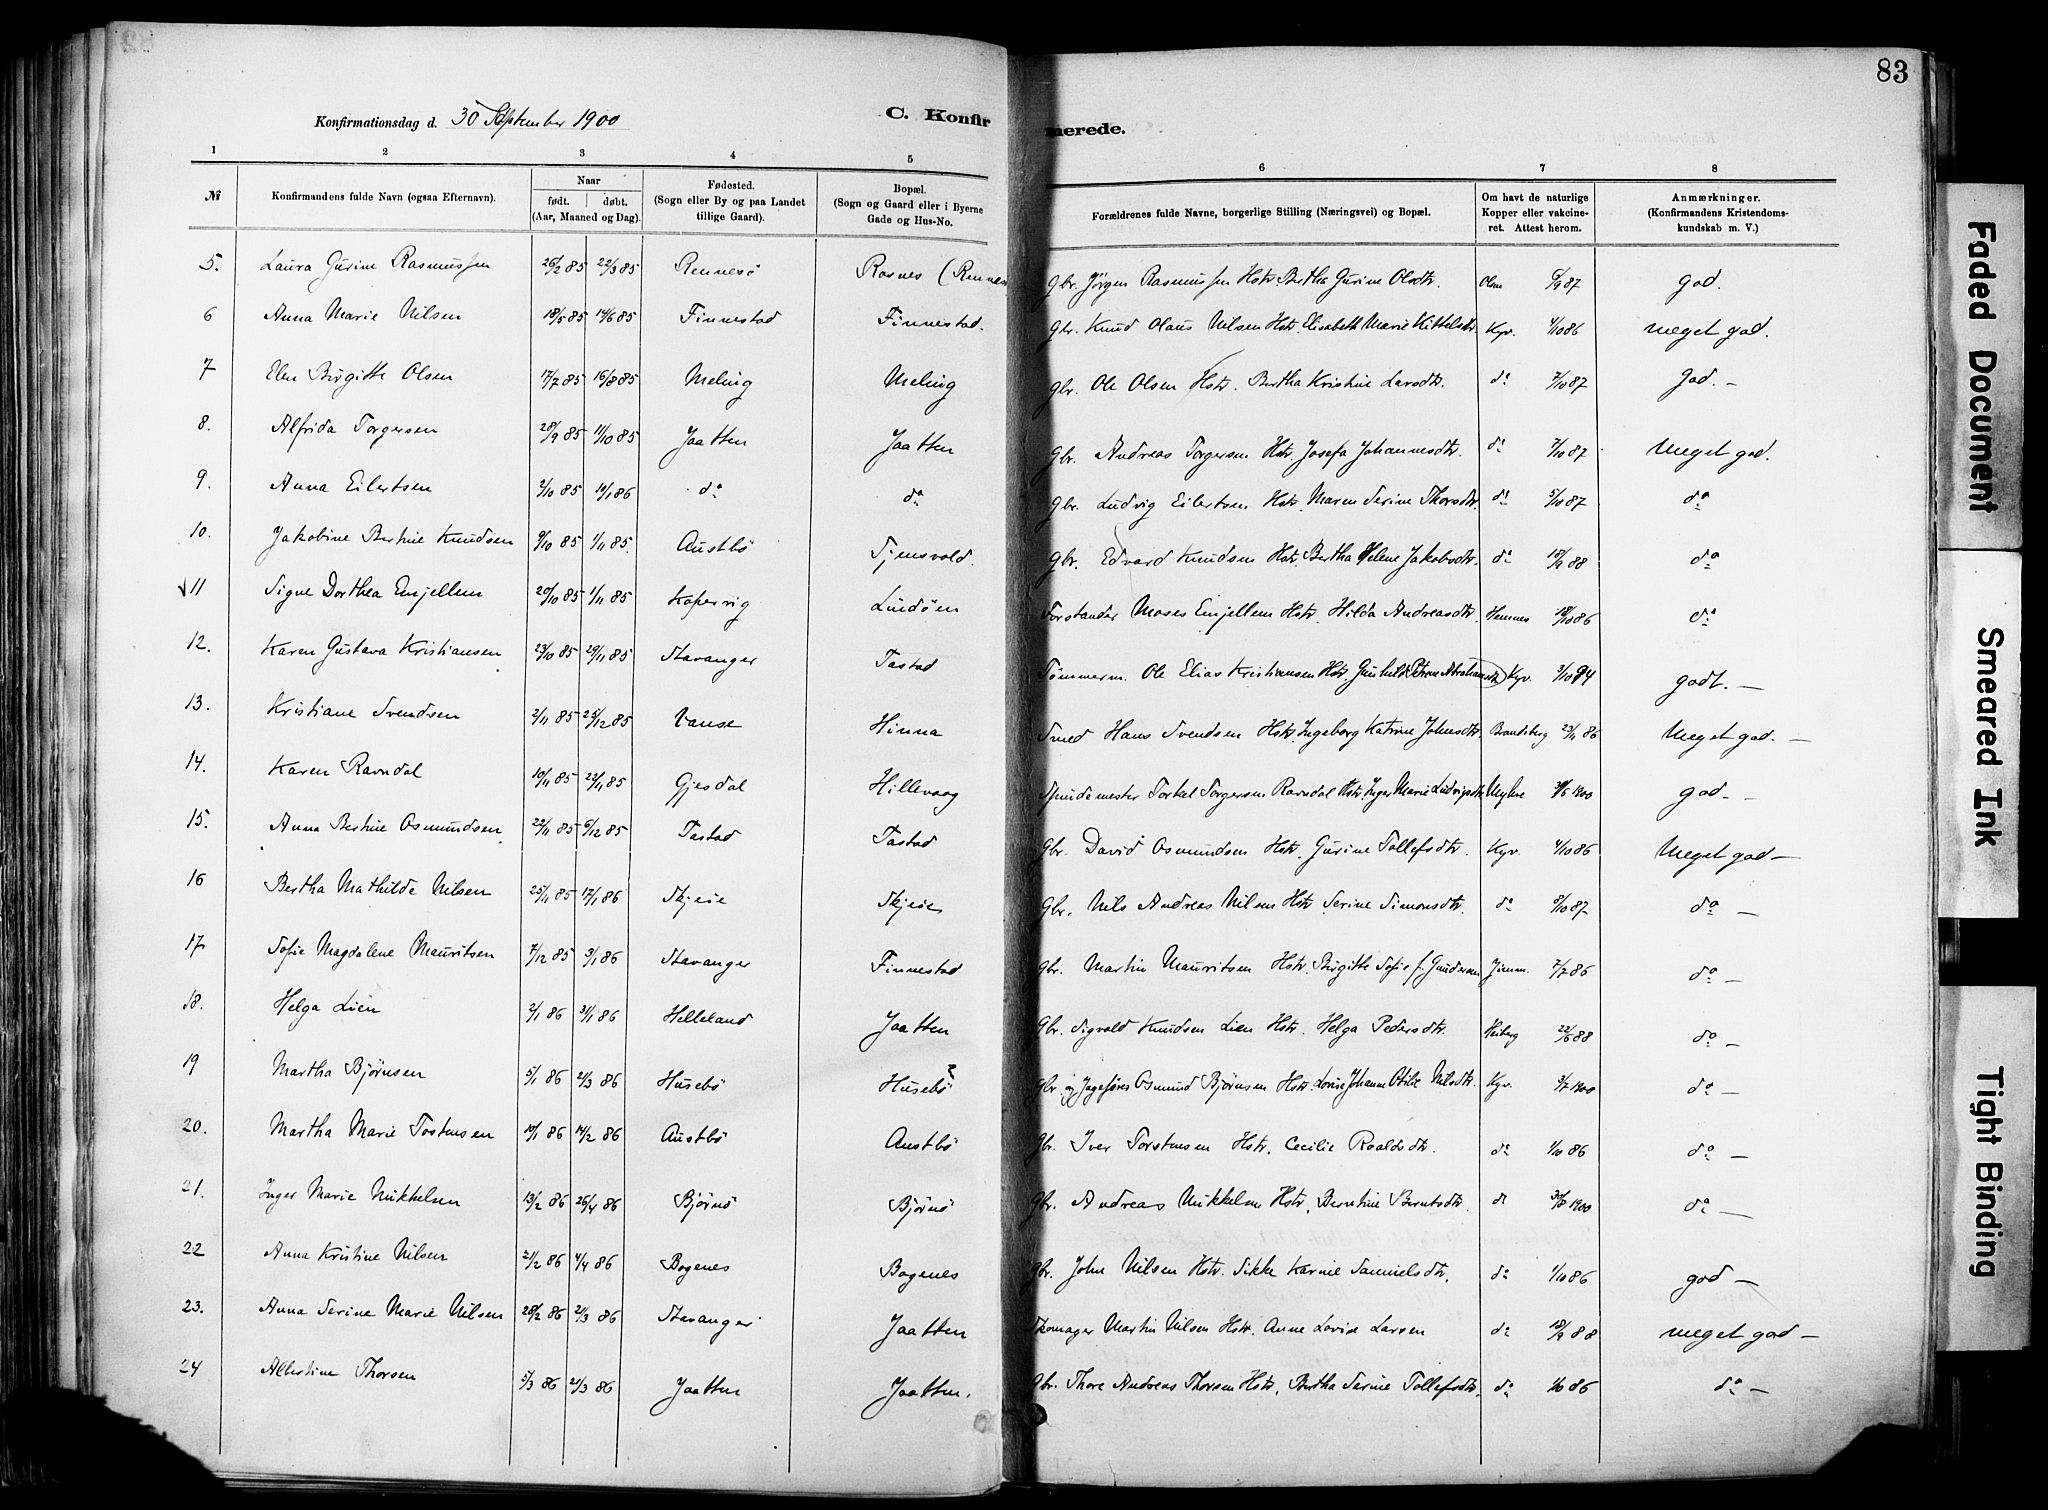 83
Konfirmationsdag d. 30 September 1900 C. Konfirmerede.
1 2 3 4 5 6 7 8
№ Konfirmandens fulde Navn (ogsaa Efternavn). Naar født. døbt. (Aar, Maaned og Dag). Fødested. (Sogn eller By og paa Landet tillige Gaard). Bopæl. (Sogn og Gaard eller i Byerne Gade og Hus-No. Forældrenes fulde Navne, borgerlige Stilling (Næringsvei) og Bopæl. Om havt de naturlige Kopper eller vakcineret. Attest herom. Anmærkninger. (Konfirmandens Kristendomskundskab m. V.)
5. Laura Gurine Rasmussen 26/2 85 22/3 85 Rennesö Rosnes (Rennesö Gbr. Jörgen Rasmussen Hstr. Bertha Gurine Olsdtr. Olsen /9 87 god.
6 Anna Marie Nilsen 18/5 85 14/6 85 Finnestad Finnestad. Gbr. Knud Olaus Nilsen Hstr. Elisabeth Marie Kittelsdtr. Kyv. 4/10 86 meget god.
7 Elen Birgitte Olsen 17/7 85 16/8 85 Meling Meling Gbr. Ole Olsen Hstr. Bertha Kristine Larsdtr. do 7/10 87 God. —
8. Alfrida Torgersen 28/9 85 11/10 85 Jaatten Jaatten Gbr. Andreas Torgersen Hstr. Josefa Johannesdtr. do 7/10 87 Meget god.
9. Anna Eilertsen 2/10 85 10/1 86 do do Gbr. Ludvig Eilertsen Hstr. Maren Serine Thorsdtr. do 5/10 87 do
10. Jakobine Bertine Knudsen 9/10 85 1/11 85. Austbö Tjensvold. Gbr. Edvard Knudsen Hstr. Bertha Helene Jakobsdtr. do 18/9 88 do
√11 Signe Dorthea Emjellem 20/10 85 1/11 85 Kopervig Lindöen Forstander Moses Emjellem Hstr. Hilda Andreasdtr. Hennes 18/10 86 do
12. Karen Gustava Kristiansen 23/10 85 29/11 85 Stavanger Tastad Tömmerm. Ole Elias Kristiansen Hstr. Gunhild Petrine Abrahamsdtr. Kyv. 3/10 94 godt. —
13. Kristiane Svendsen 2/11 85 25/12 85 Vanse Hinna Smed Hans Svendsen Hstr. Ingeborg Katrine Johnsdtr. Brandsberg 23/11 86 Meget god. —
14. Karen Ravndal 10/11 85 22/11 85 Gjesdal Hillevaag Spindemester Torkel Torgersen Ravndal Hstr. Inger Marie Ludvigsdtr. 1900 god. -
15. Anna Bertine Osmundsen 22/11 85 6/12 85 Tastad Tastad Gbr. David Osmundsen Hstr. Gurine Tollefsdtr. Kyv. 4/10 86 Meget god —
16 Bertha Mathilde Nilsen 25/11 85 17/1 86 Skjeie Skjeie Gbr. Nils Andreas Nilsen Hstr. Serine Simonsdtr. do 5/10 87 do —
17 Sofie Magdalene Mauritsen 7/12 85 3/1 86 Stavanger Finnestad Gbr. Martin Mauritsen Hstr. Birgitte Sofie f. Gundersen 7/7 86 do —
18. Helga Lien 2/1 86 31/1 86 Helleland Jaatten Gbr. Sigvald Knudsen Lien Hstr. Helga Pedersdtr. Heiberg 22/6 88 do —
19 Martha Björnsen 5/1 86 2/3 86 Husebö Husebö? Gbr. og Osmund Björnsen Hstr. Lovise Johanne Otilie Nilsdtr. Kyv. 3/7 1900 do —
20. Martha Marie Tostensen 10/1 86 14/2 86 Austbö Austbö Gbr. Iver Torstensen Hstr. Cecilie Roaldsdtr. do 1/10 86 do —
21. Inger Marie Mikkelsen 13/2 86 26/4 86 Björnö Björnö Gbr. Andreas Mikkelsen Hstr. Berntine Berntsdtr. do 30/8 1900 do —
22 Anna Kristine Nilsen 21/2 86 4/4 86 Bogenes Bogenes Gbr. John Nilsen Hstr. Sikke Karine Samuelsdtr. do 1/10 86 god —
23. Anna Serine Marie Nilsen 28/2 86 21/3 86 Stavanger Jaatten Skomager Martin Nilsen Hstr. Anne Lovise Larsen do 18/9 88 meget god —
24 Albertine Thorsen 5/3 86 21/3 86 Jaatten Jaatten. Gbr. Thore Andreas Thorsen Hstr. Bertha Serine Tollefsdtr. do 1/10 86 do —
Faded Document
Smeared Ink
Tight Binding